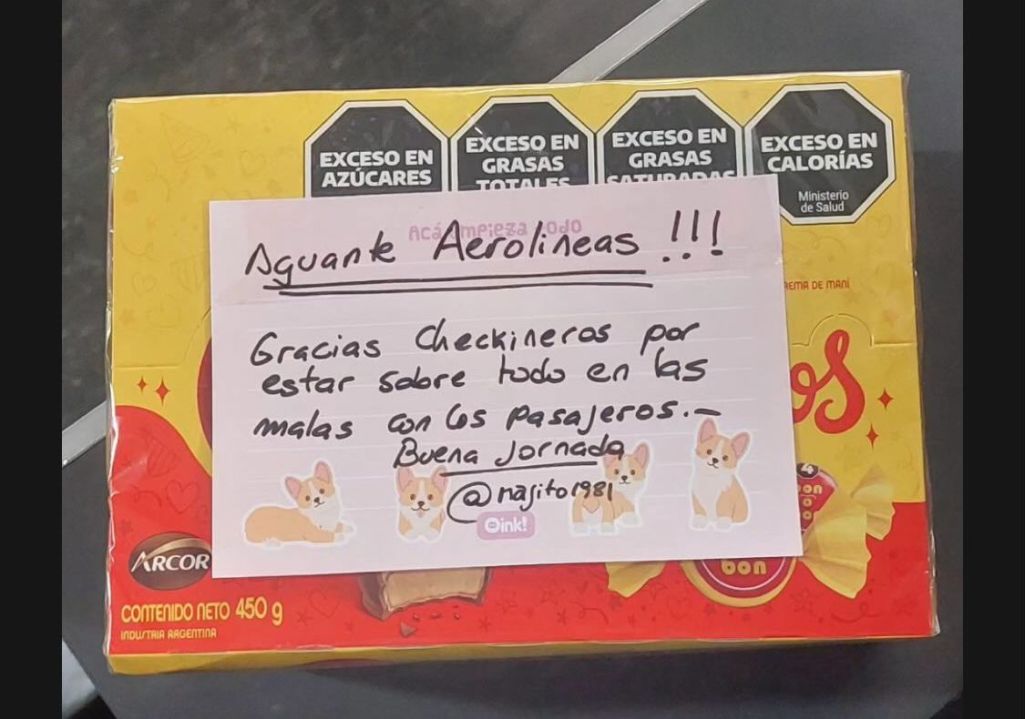 EXCESO EN
AZÚCARES
EXCESO EN
GRASAS
TOTALES
EXCESO EN
GRASAS
SATURADAS
EXCESO EN
CALORÍAS
Ministerio
de Salud
Acá empieza todo
Aguante Aerolineas !!!
Gracias Checkineros por
estar sobre todo en las
malas con los pasajeros.-
Buena Jornada
@nasito1981
Oink!
CREMA DE MANÍ
os
bon
o
bon
ARCOR
CONTENIDO NETO 450 g
INDUSTRIA ARGENTINA